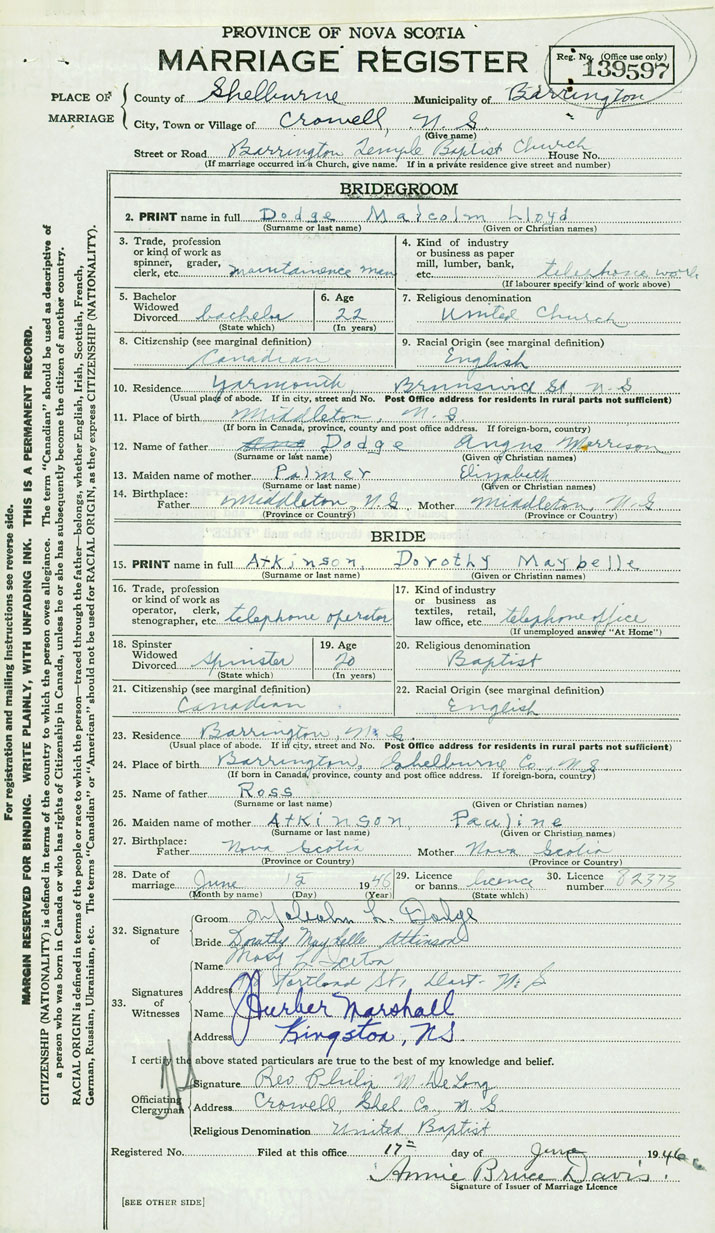 PROVINCE OF NOVA SCOTIA
MARRIAGE REGISTER
Reg. No. (Office use only)
139597
PLACE OF MARRIAGE
County of Shelburne Municipality of Barrington
City, Town or Village of Crowell, N.S.
(Give name)
Street or Road Barrington Temple Baptist Church House No.
(If marriage occurred in a Church, give name. If in a private residence give street and number)
BRIDEGROOM
2. PRINT name in full Dodge Malcolm Lloyd
(Surname or last name) (Given or Christian names)
3. Trade, profession or kind of work as spinner, grader, clerk, etc. maintainence man
4. Kind of industry or business as paper mill, lumber, bank, etc. telephone work
(If labourer specify kind of work above)
5. Bachelor Widowed Divorced bachelor
(State which)
6. Age 22
(In years)
7. Religious denomination United Church
8. Citizenship (see marginal definition) Canadian
9. Racial Origin (see marginal definition) English
10. Residence Yarmouth, Brunswick St, N.S
(Usual place of abode. If in city, street and No. Post Office address for residents in rural parts not sufficient)
11. Place of birth Middleton, N.S
(If born in Canada, province, county and post office address. If foreign-born, country)
12. Name of father Dodge Angus Morrison
(Surname or last name) (Given or Christian names)
13. Maiden name of mother Palmer Elizabeth
(Surname or last name) (Given or Christian names)
14. Birthplace: Father Middleton, N.S Mother Middleton, N.S
(Province or Country) (Province or Country)
BRIDE
15. PRINT name in full Atkinson, Dorothy Maybelle
(Surname or last name) (Given or Christian names)
16. Trade, profession or kind of work as operator, clerk, stenographer, etc. telephone operator
17. Kind of industry or business as textiles, retail, law office, etc. telephone office
(If unemployed answer "At Home")
18. Spinster Widowed Divorced spinster
(State which)
19. Age 20
(In years)
20. Religious denomination Baptist
21. Citizenship (see marginal definition) Canadian
22. Racial Origin (see marginal definition) English
23. Residence Barrington, N.S.
(Usual place of abode. If in city, street and No. Post Office address for residents in rural parts not sufficient)
24. Place of birth Barrington, Shelburne Co, N.S
(If born in Canada, province, county and post office address. If foreign-born, country)
25. Name of father Ross
(Surname or last name) (Given or Christian names)
26. Maiden name of mother Atkinson Pauline
(Surname or last name) (Given or Christian names)
27. Birthplace: Father Nova Scotia Mother Nova Scotia
(Province or Country) (Province or Country)
28. Date of marriage June 12 1946
(Month by name) (Day) (Year)
29. Licence or banns licence
(State which)
30. Licence number 82373
32. Signature of
Groom Malcolm L. Dodge
Bride Dorothy Maybelle Atkinson
33. Signatures of Witnesses
Name Mary L.
Address Portland St, Dart- N.S
Name Hurber Marshall
Address Kingston, NS
I certify the above stated particulars are true to the best of my knowledge and belief.
Officiating Clergyman
Signature Rev Philip M. DeLong
Address Crowell, Shel. Co., N.S
Religious Denomination United Baptist
Registered No. Filed at this office 17th day of June 1946
Annie Bruce Davis.
Signature of Issuer of Marriage Licence
[SEE OTHER SIDE]
For registration and mailing instructions see reverse side.
MARGIN RESERVED FOR BINDING. WRITE PLAINLY, WITH UNFADING INK. THIS IS A PERMANENT RECORD.
CITIZENSHIP (NATIONALITY) is defined in terms of the country to which the person owes allegiance. The term "Canadian" should be used as descriptive of
a person who was born in Canada or who has rights of Citizenship in Canada, unless he or she has subsequently become the citizen of another country.
RACIAL ORIGIN is defined in terms of the people or race to which the person—traced through the father—belongs, whether English, Irish, Scottish, French,
German, Russian, Ukrainian, etc. The terms "Canadian" or "American" should not be used for RACIAL ORIGIN, as they express CITIZENSHIP (NATIONALITY).